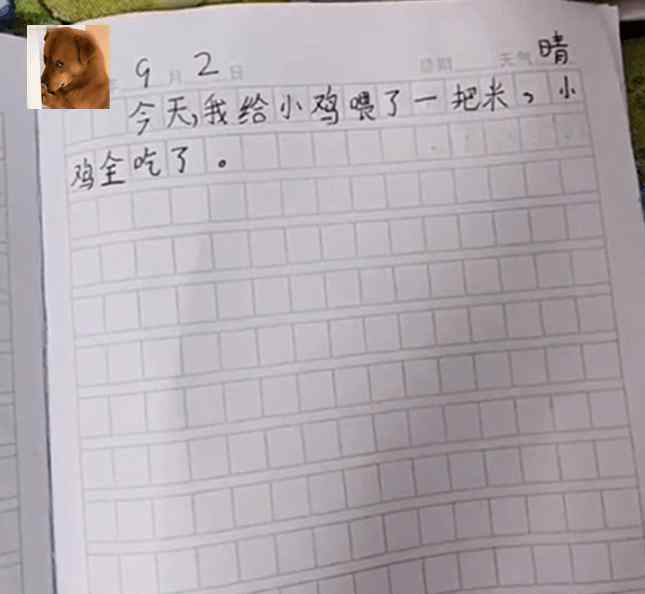 年 9 月 2 日 星期 天气 晴
今天,我给小鸡喂了一把米,小
鸡全吃了。